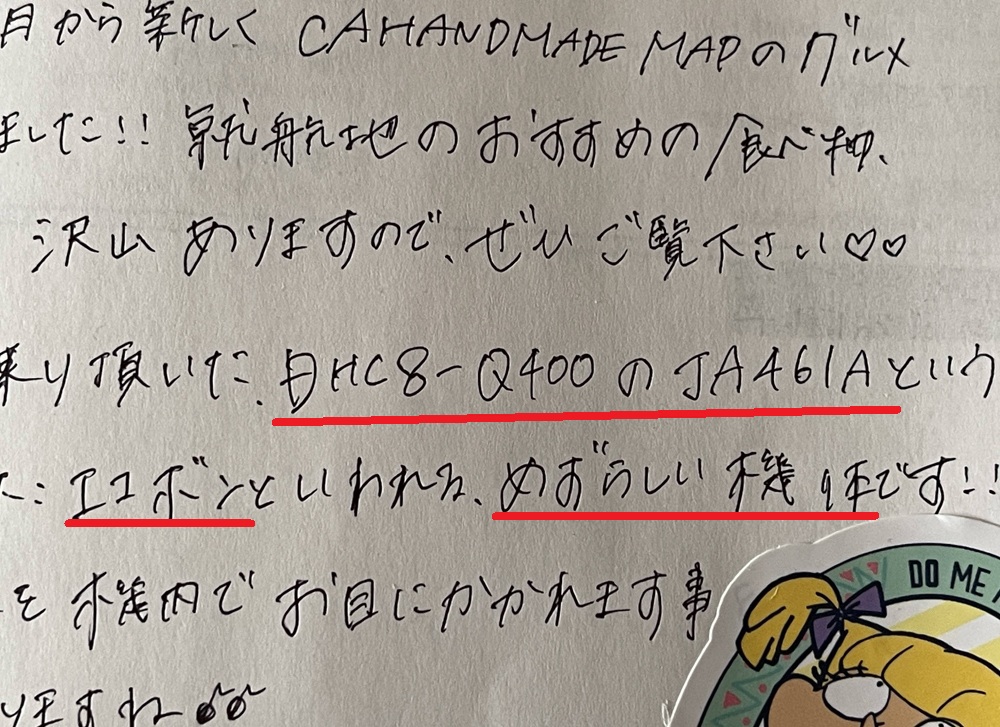 月から新しく CAHANDMADE MAPのグルメ
ました!! 就航地のおすすめの食べ物、
沢山ありますので、ぜひご覧下さい♡♡
乗り頂いた、DHC8-Q400のJA461Aという
エコボンといわれる、めずらしい機体です!!
を機内でお目にかかれます事
りますね♪♪
DO ME